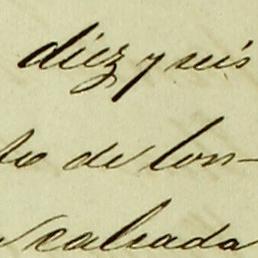 diez y seis
to de lon-
calzada